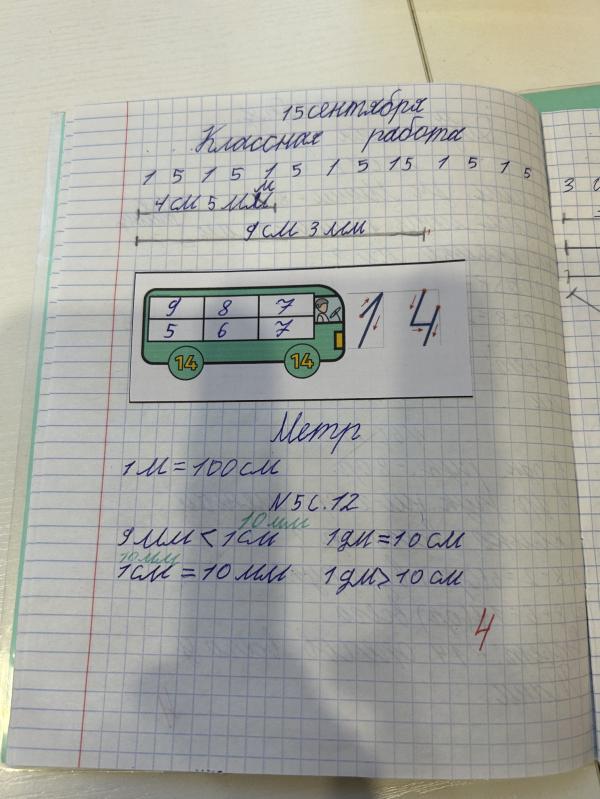 15 сентября
Классная работа
1 5 1 5 1 5 1 5 15 1 5 1 5
4 см 5 мм
9 см 3 мм
9 8 7
5 6 7
14 14
1 4
Метр
1м = 100 см
N 5 с. 12
10 мм
9 мм < 1 см 1 дм = 10 см
10 мм
1 см = 10 мм 1 дм > 10 см
4